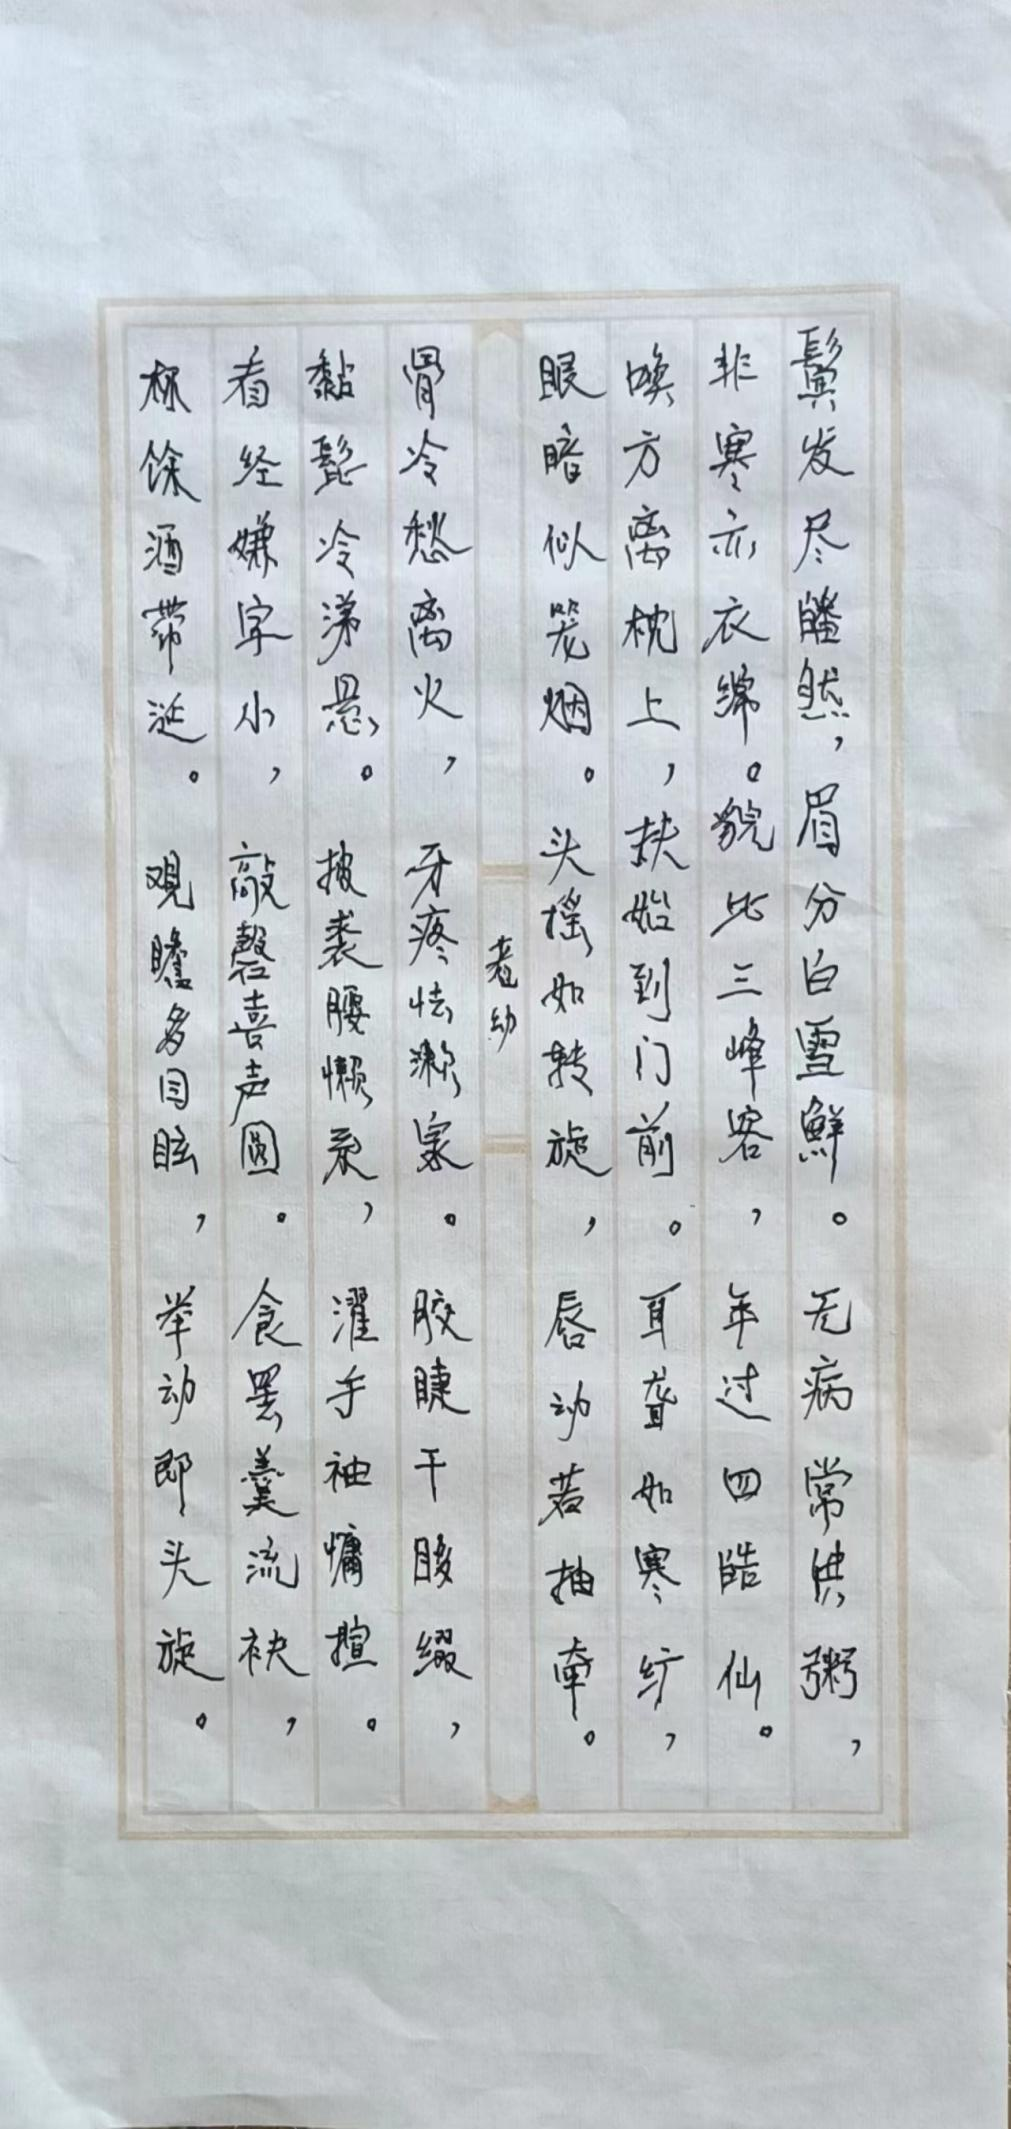 鬓发尽皤然，眉分白雪鲜。无病常供粥，
非寒亦衣绵。貌比三峰客，年过四皓仙。
唤方离枕上，扶始到门前。耳聋如寒纩，
眼暗似笼烟。头摇如转旋，唇动若抽牵。
老幼
骨冷愁离火，牙疼怯漱泉。胶睫干眵缀，
黏髭冷涕悬。披裘腰懒系，濯手袖慵揎。
看经嫌字小，敲磬喜声圆。食罢羹流袂，
杯馀酒带涎。观瞻多目眩，举动即头旋。